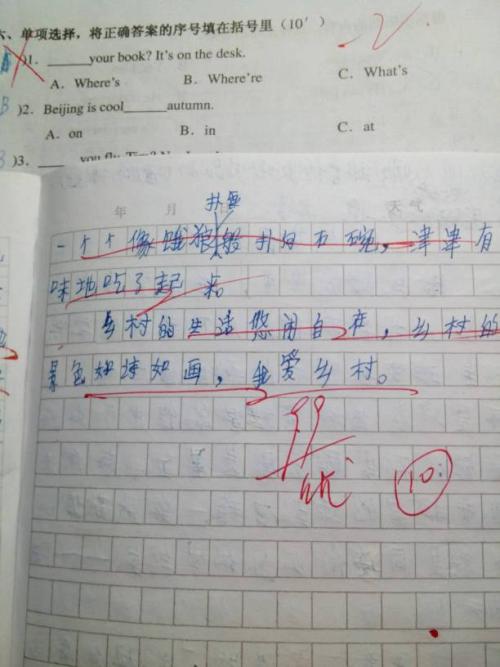 六、单项选择，将正确答案的序号填在括号里（10′）
A )1. ______your book? It's on the desk.
A. Where's B. Where're C. What's
B )2. Beijing is cool______autumn.
A. on B. in C. at
)3. ____ you fly
年 月 天气
一个个像饿狼般扑向 ，津津有
味地吃了起来。
乡村的生活悠闲自在，乡村的
景色如诗如画，我爱乡村。
99
优
10